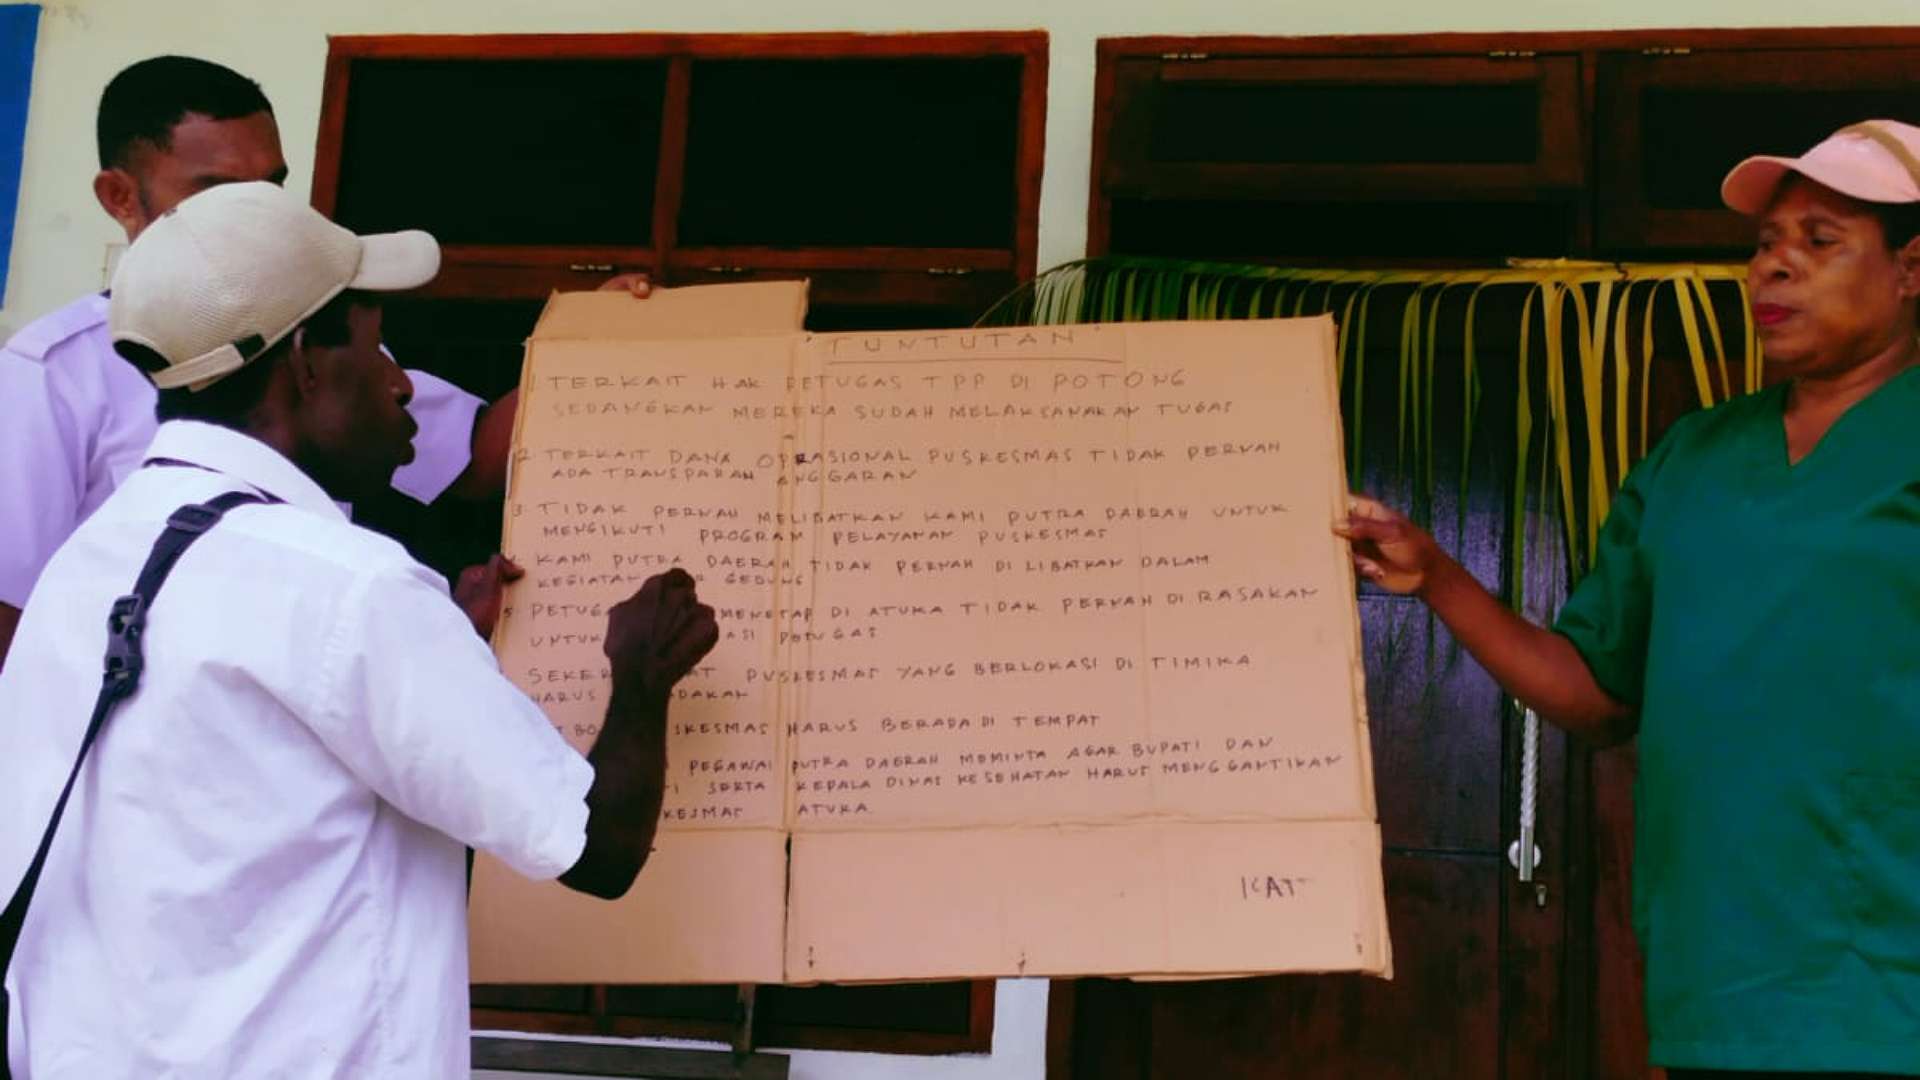 TUNTUTAN
1 TERKAIT HAK PETUGAS TPP DI POTONG
SEDANGKAN MEREKA SUDAH MELAKSANAKAN TUGAS
2. TERKAIT DANA OPRASIONAL PUSKESMAS TIDAK PERNAH
ADA TRANSPARAN ANGGARAN
3. TIDAK PERNAH MELIBATKAN KAMI PUTRA DAERAH UNTUK
MENGIKUTI PROGRAM PELAYANAN PUSKESMAS
KAMI PUTRA DAERAH TIDAK PERNAH DI LIBATKAN DALAM
KEGIATAN GEDUNG
5 MENETAP DI ATUKA TIDAK PERNAH DI RASAKAN
UNTUK PETUGAS
PUSKESMAS YANG BERLOKASI DI TIMIKA
HARUS
HARUS BERADA DI TEMPAT
PEGAWAI PUTRA DAERAH MEMINTA AGAR BUPATI DAN
SERTA KEPALA DINAS KESEHATAN HARUS MENGGANTIKAN
ATUKA